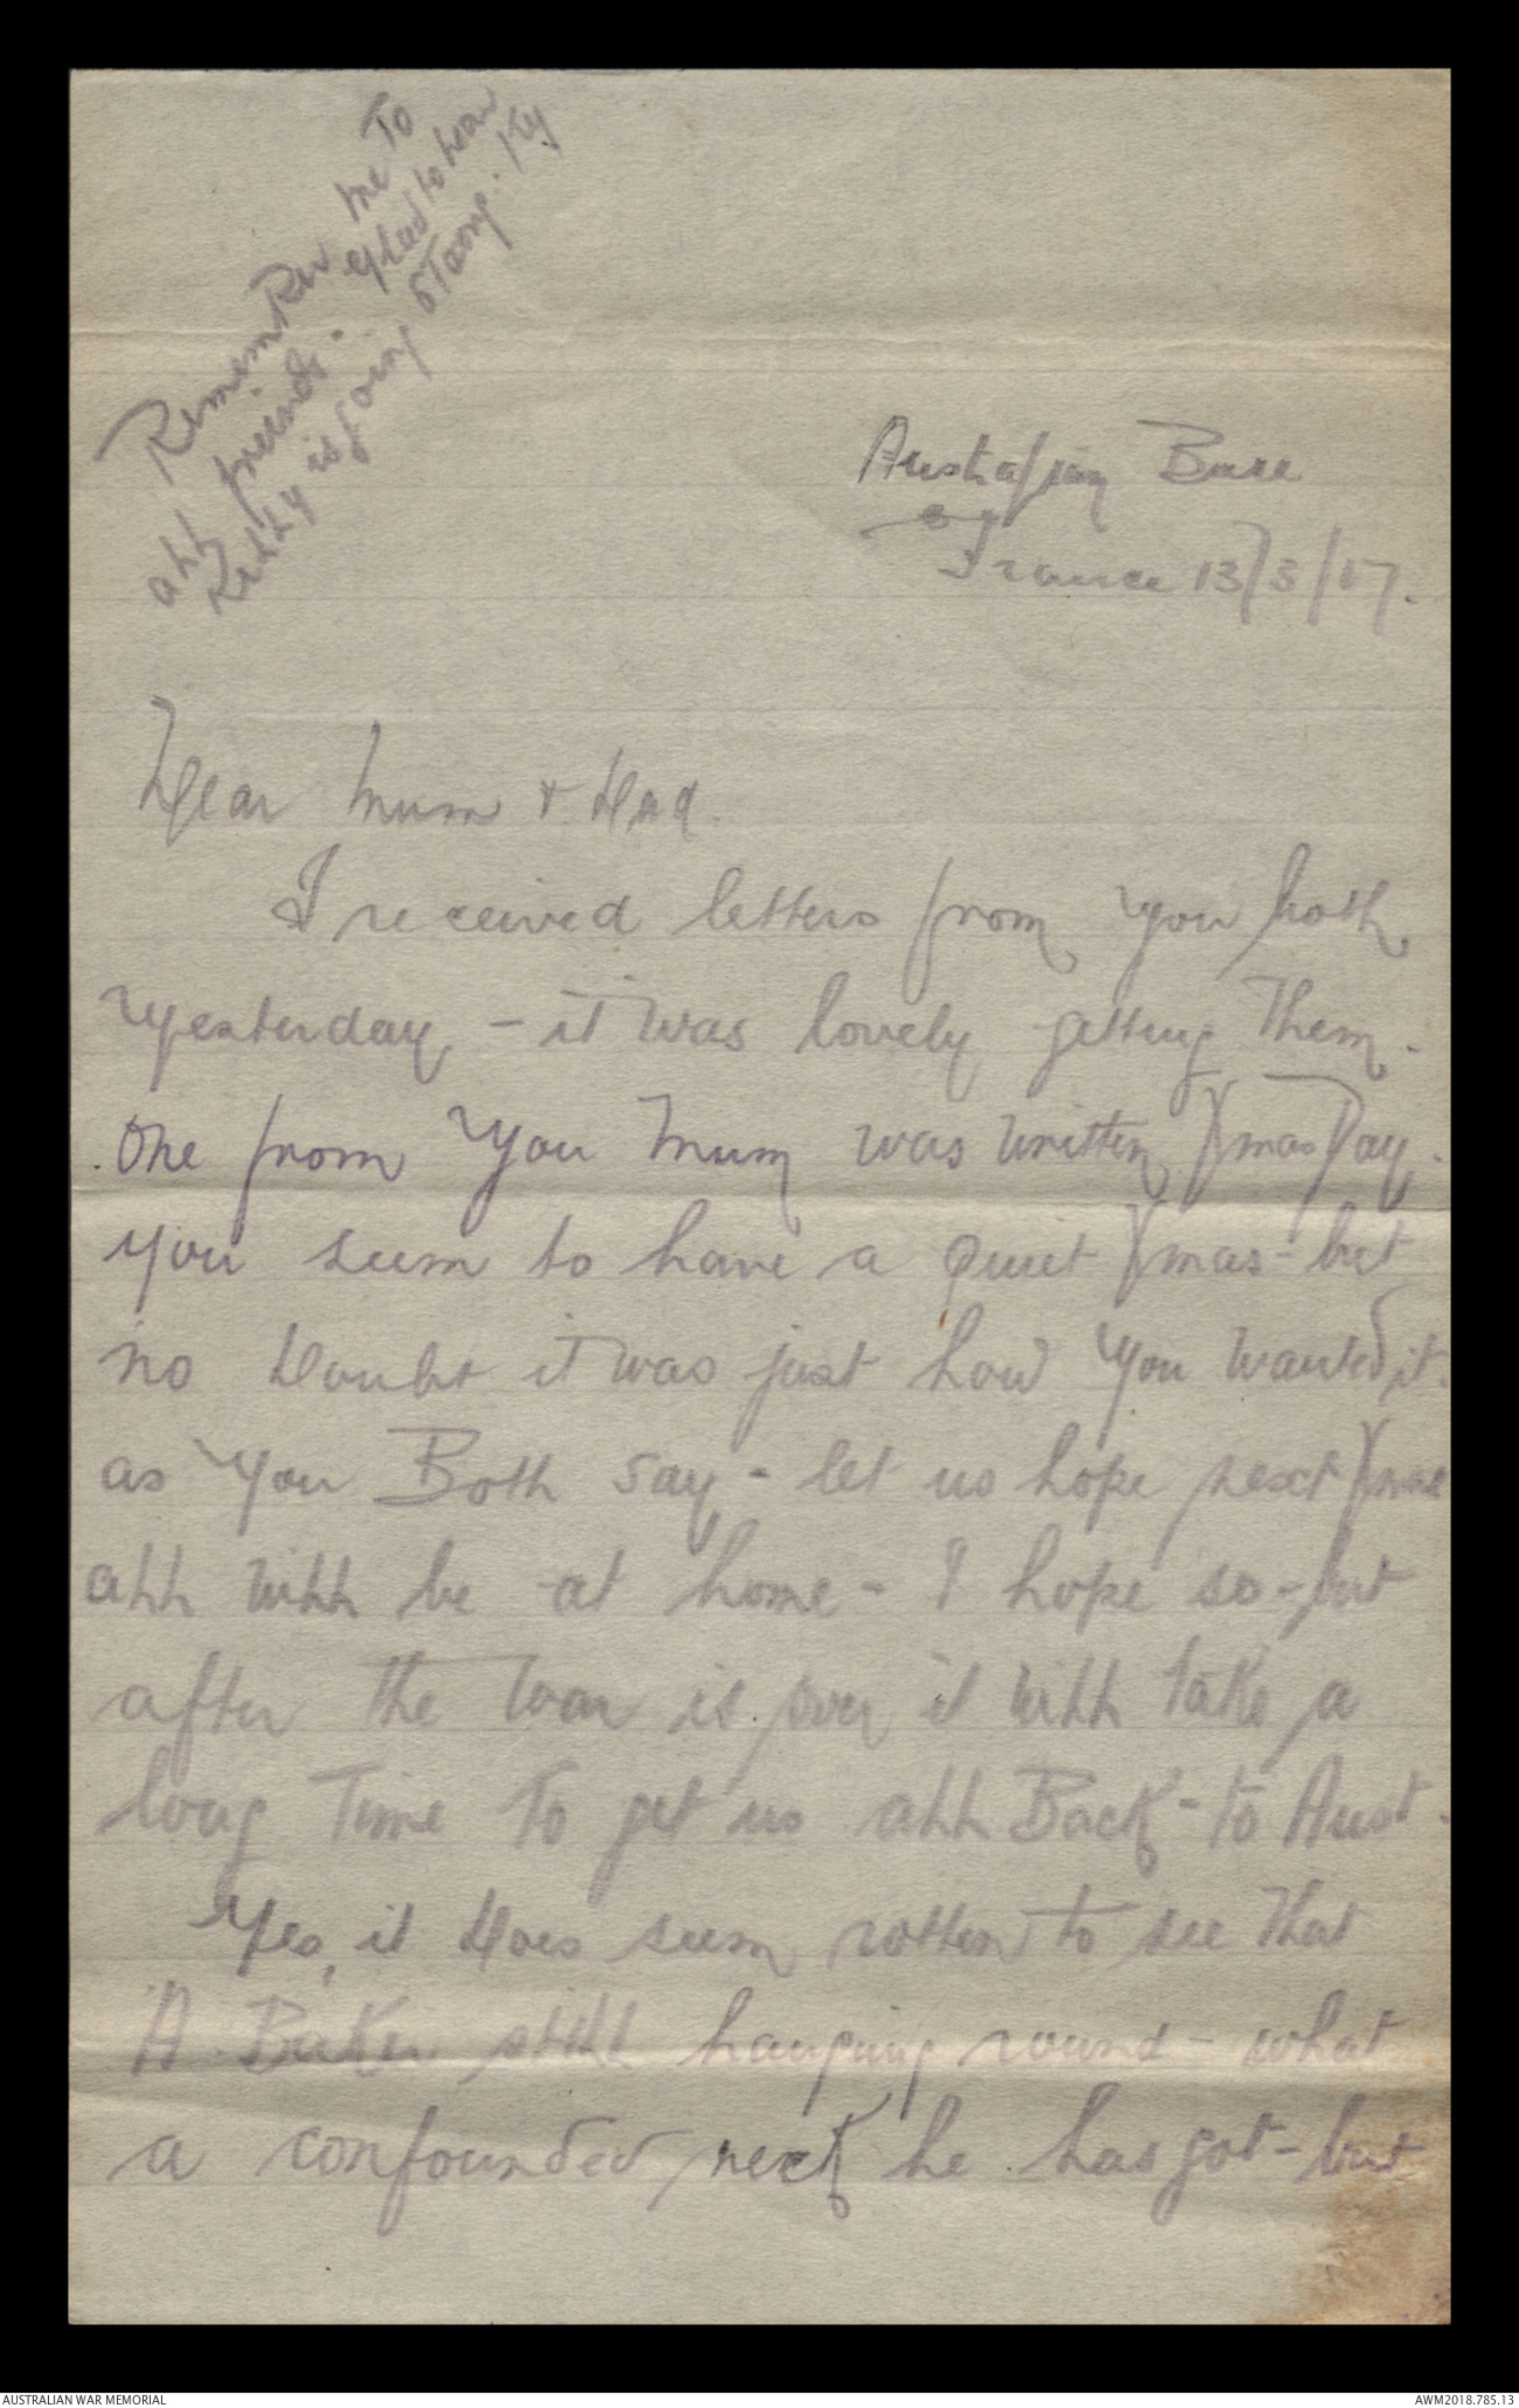 Remember me To
all friends. glad to hear
Kelly is going strong.
Australian Base
France 13/3/17.
Dear Mum & Dad.
I received letters from you both
yesterday, - it was lovely getting them.
One from you Mum was written Xmas Day.
you seem to have a quiet Xmas - but
no doubt it was just how you wanted it.
as you Both say - let us hope next Xmas
all will be at home - I hope so - but
after the war is over it will take a
long Time To get us all Back - to Aust.
Yes, it does seem rotten to see that
A. Baker still hanging round - what
a confounded neck he has got - but
AUSTRALIAN WAR MEMORIAL
AWM2018.785.13